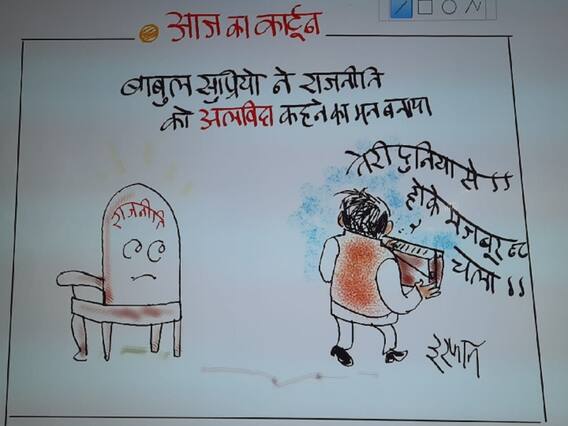 आज का कार्टून
बाबुल सुप्रियो ने राजनीति
को अलविदा कहने का मन बनाया
राजनीति
तेरी दुनिया से ।।
होके मजबूर
चला ।।
इरफान